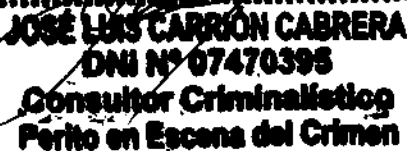 JOSÉ LUIS CARRIÓN CABRERA
DNI Nº 07470395
Consultor Criminalístico
Perito en Escena del Crimen